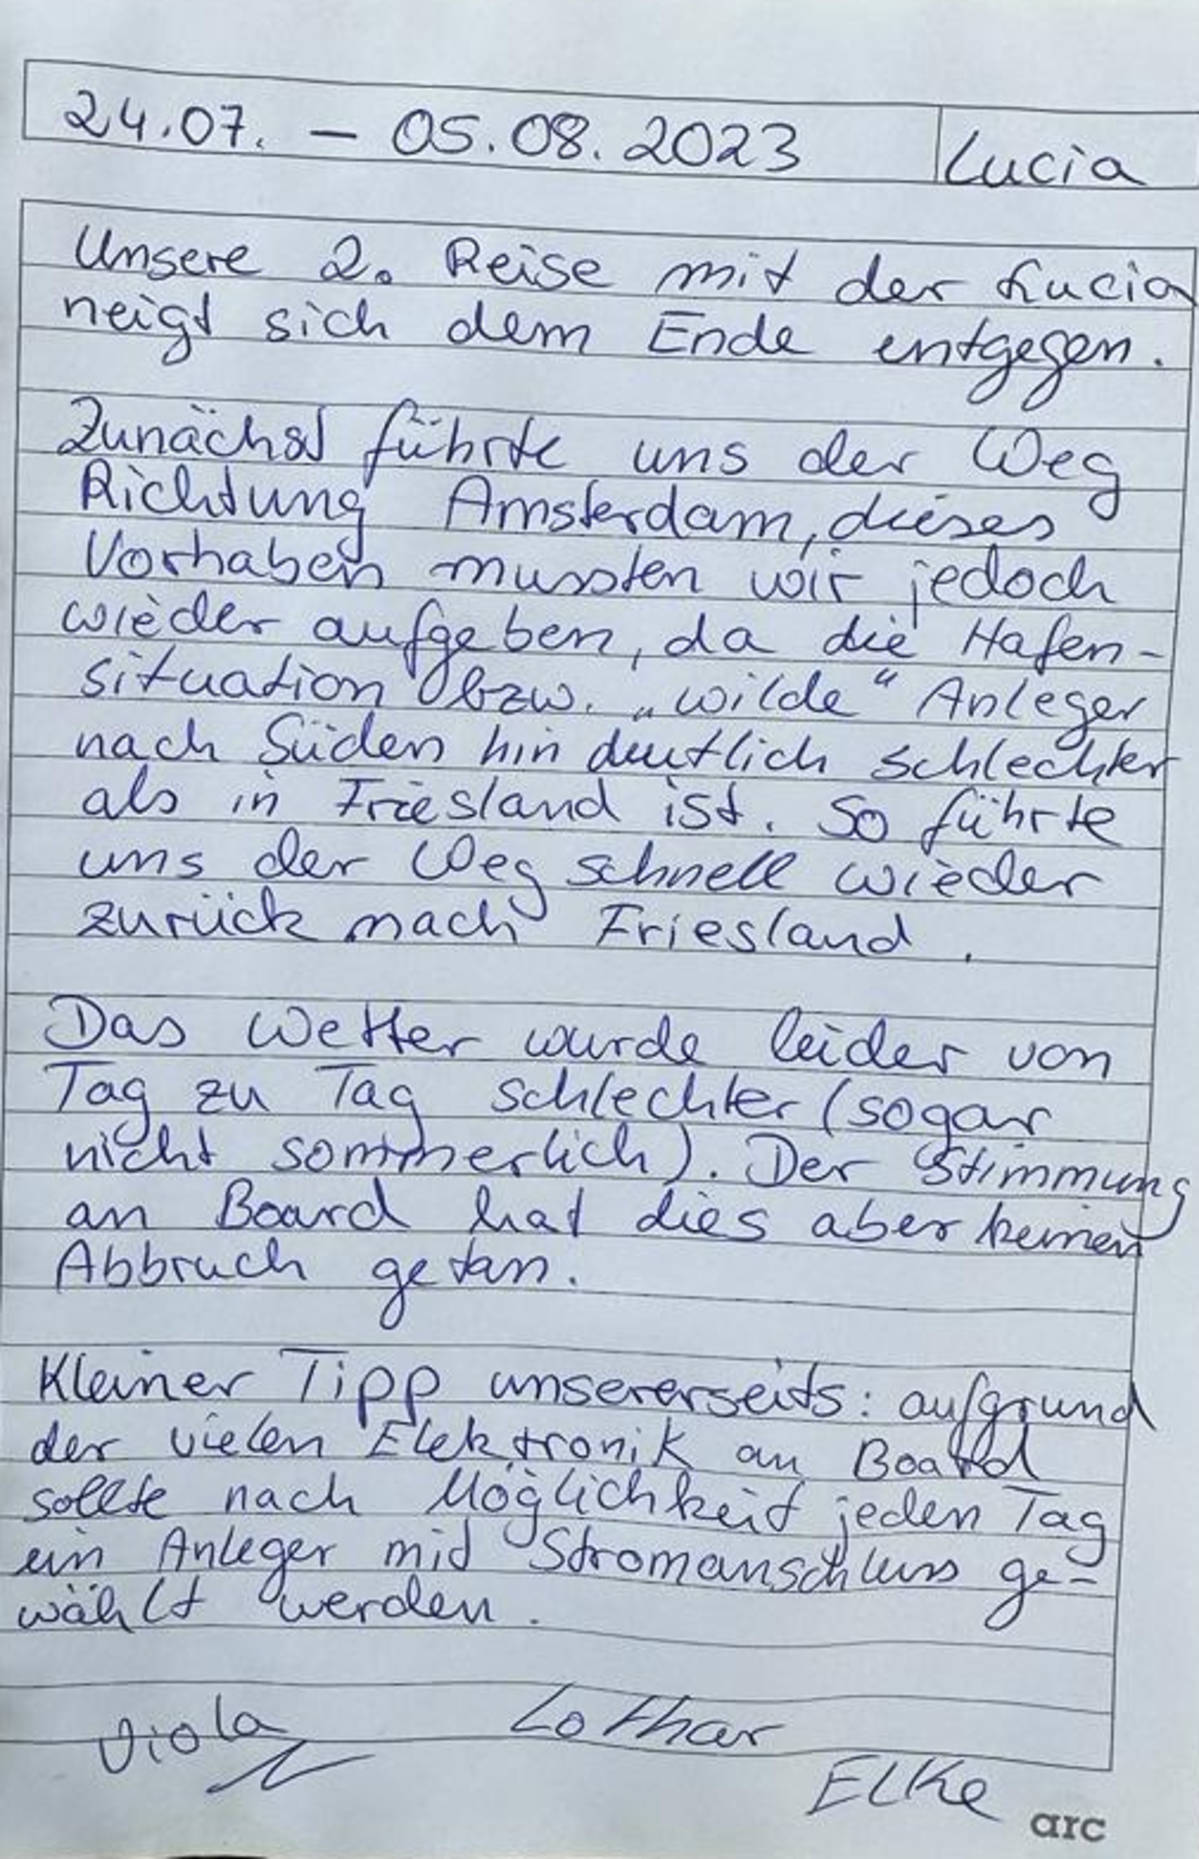 24.07. – 05.08.2023 Lucia
Unsere 2. Reise mit der Lucia
neigt sich dem Ende entgegen.
Zunächst führte uns der Weg
Richtung Amsterdam, dieses
Vorhaben mussten wir jedoch
wieder aufgeben, da die Hafen-
situation bzw. „wilde“ Anleger
nach Süden hin deutlich schlechter
als in Friesland ist. So führte
uns der Weg schnell wieder
zurück nach Friesland.
Das Wetter wurde leider von
Tag zu Tag schlechter (sogar
nicht sommerlich). Der Stimmung
an Board hat dies aber keinen
Abbruch getan.
Kleiner Tipp unsererseits: aufgrund
der vielen Elektronik an Board
sollte nach Möglichkeit jeden Tag
ein Anleger mit Stromanschluss ge-
wählt werden.
Viola Lothar
Elke
arc